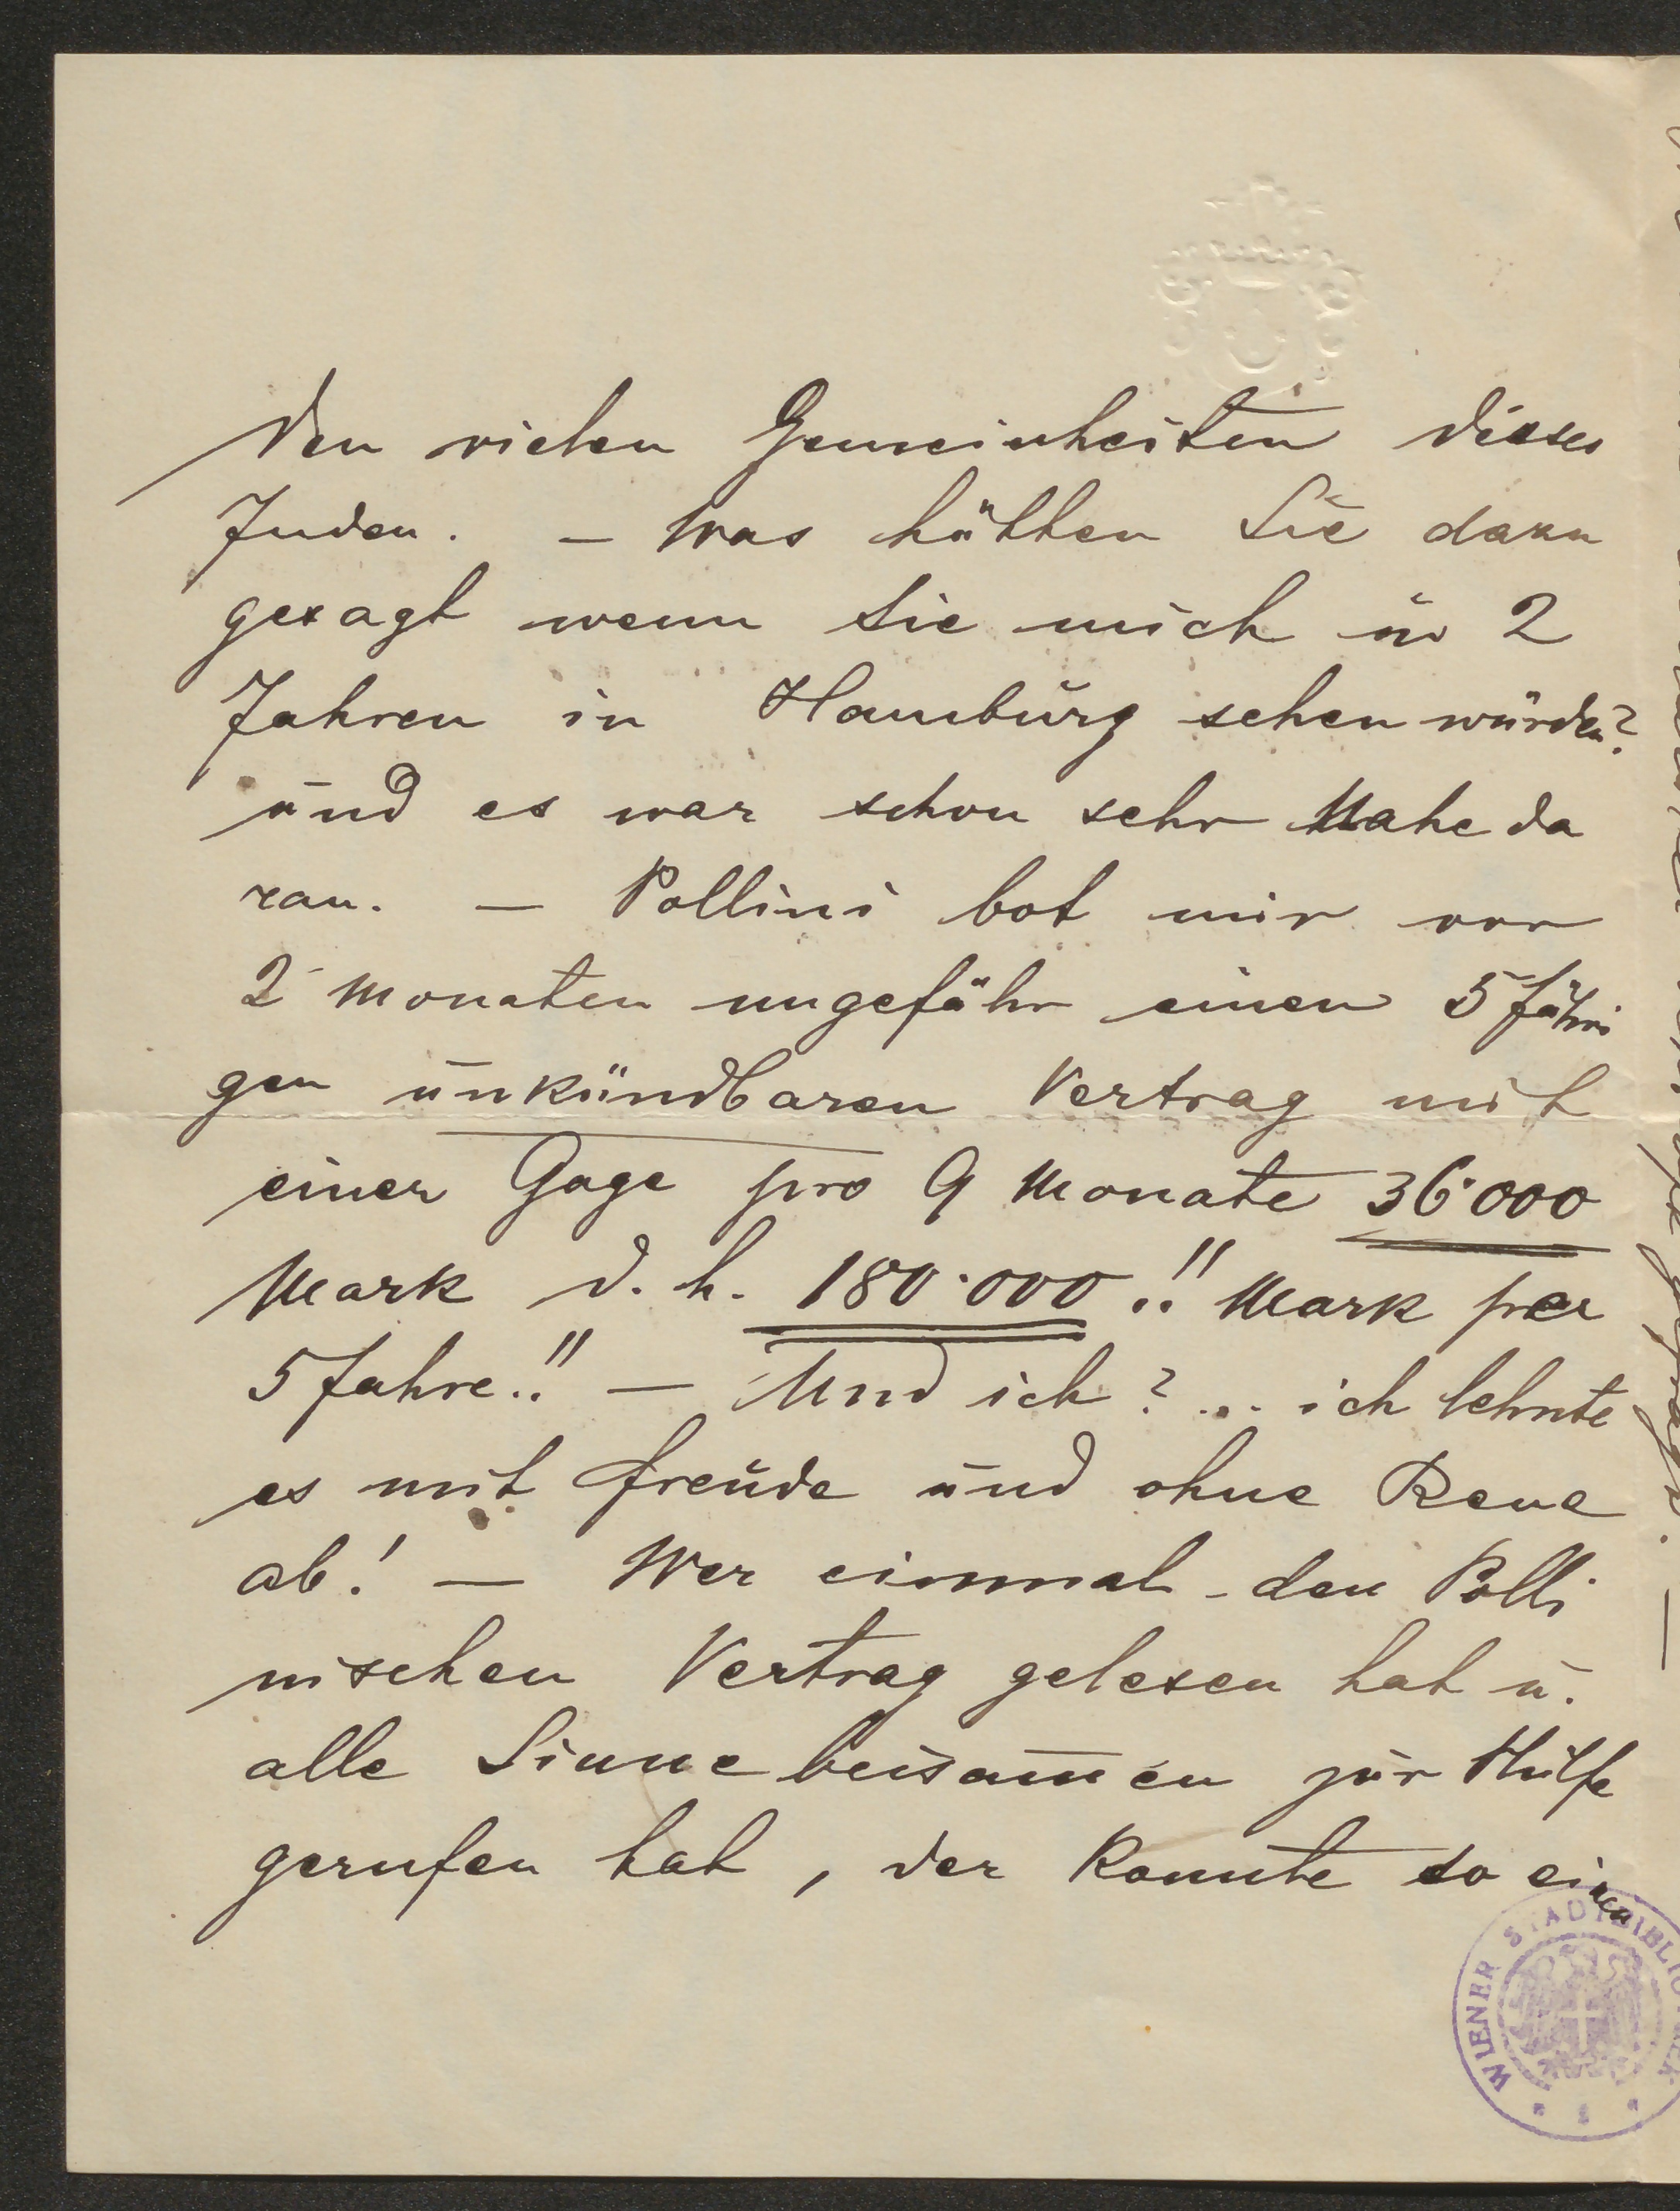 den vielen Gemeinheiten dieses
Juden. – Was hätten Sie dazu
gesagt wenn Sie mich in 2
Jahren in Hamburg sehen würden?
und es war schon sehr Nahe da
ran. – Pollini bot mir vor
2 Monaten ungefähr einen 5 jähri
gen unkündbaren Vertrag mit
einer Gage pro 9 Monate 36·000
Mark d. h. 180·000!! Mark per
5 Jahre!! – Und ich? ... ich lehnte
es mit Freude und ohne Reue
ab! – Wer einmal den Polli
nischen Vertrag gelesen hat u.
alle Sinne beisam̅en zur Hülfe
gerufen hat, der konnte so einen
WIENER STADTBIBLIOTHEK